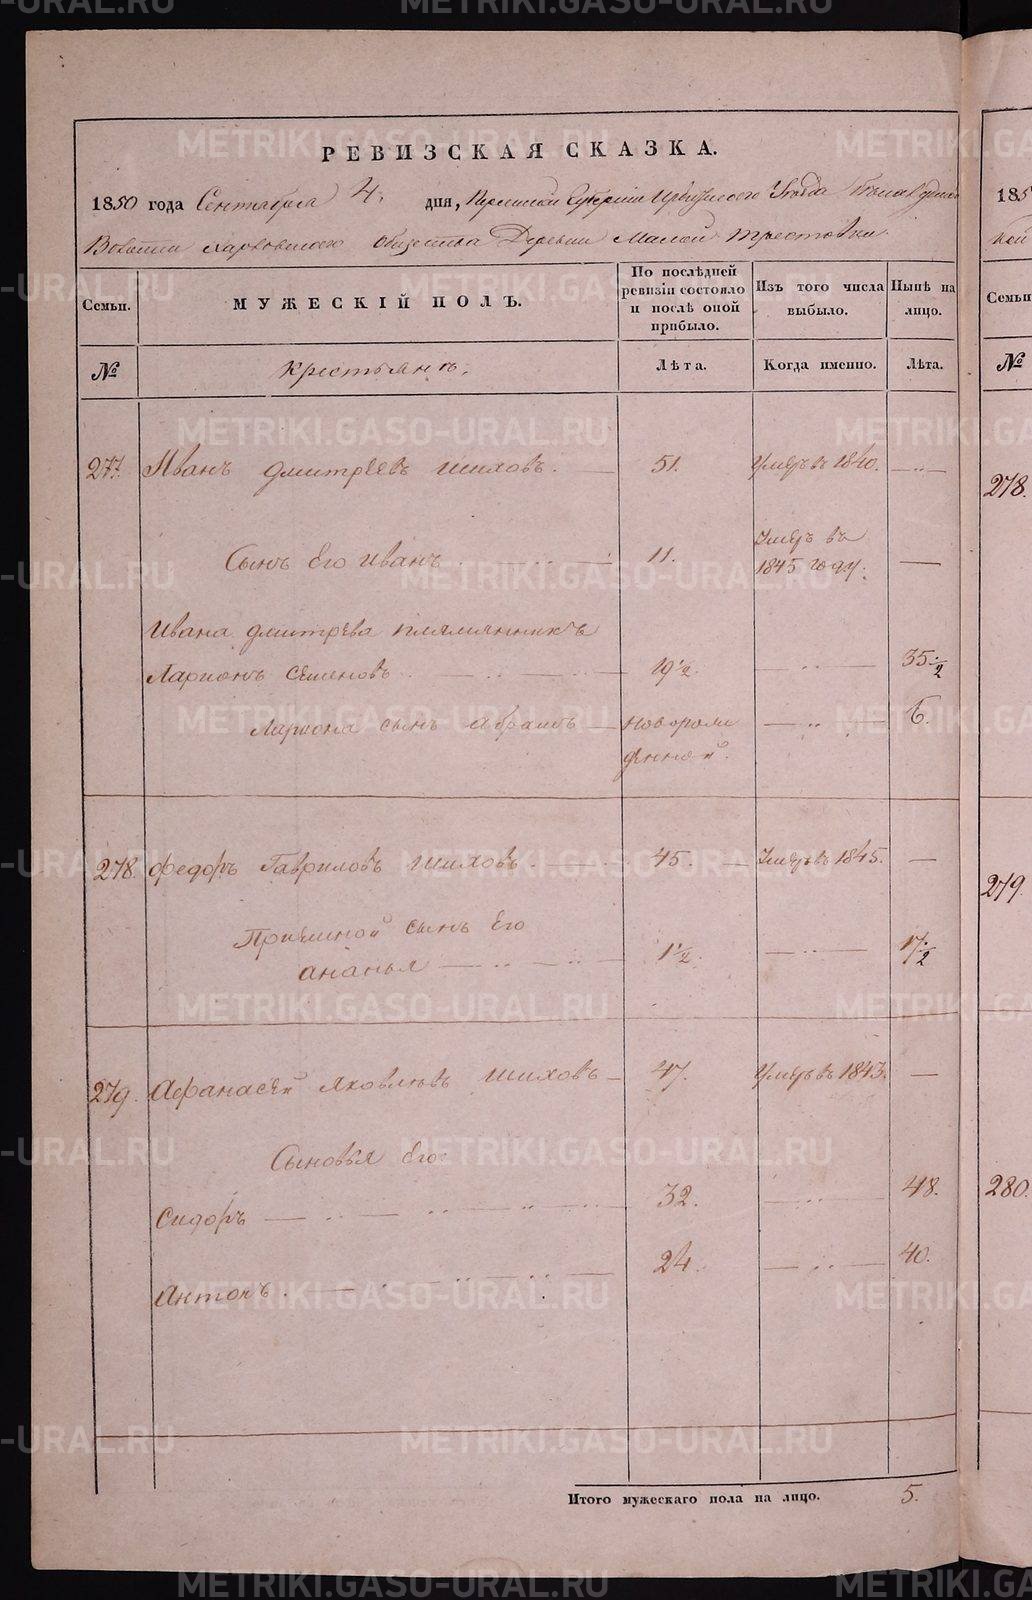 РЕВИЗСКАЯ СКАЗКА.
1850 года Сентября 4. дня, Пермской Губернии Ирбитского Уезда
Волости Харловского общества Деревни Малой Трестовки.
Семьи. МУЖЕСКІЙ ПОЛЪ. По послѣдней ревизіи состояло и послѣ оной прибыло. Изъ того числа выбыло. Нынѣ на лицо.
№ Крестьянъ. Лѣта. Когда именно. Лѣта.
277. Иванъ Дмитреевъ Шиховъ. 51. Умеръ въ 1840.
Сынъ Его Иванъ 11. Умеръ въ 1845 году.
Ивана Дмитрева племянникъ
Ларионъ Семеновъ 19 1/2. 35 1/2
Лариона сынъ Абрамъ новорожденной. 6.
278. Федоръ Гавриловъ Шиховъ 45. Умеръ въ 1845.
Приемной сынъ Его
Ананья 1 1/2. 17 1/2
279. Афанасей Яковлевъ Шиховъ 47. Умеръ въ 1843.
Сыновья Его:
Сидоръ 32. 48.
Антонъ. 24. 40.
Итого мужескаго пола на лицо. 5.
185
кой
Семьи
№
278.
279.
280.
METRIKI.GASO-URAL.RU